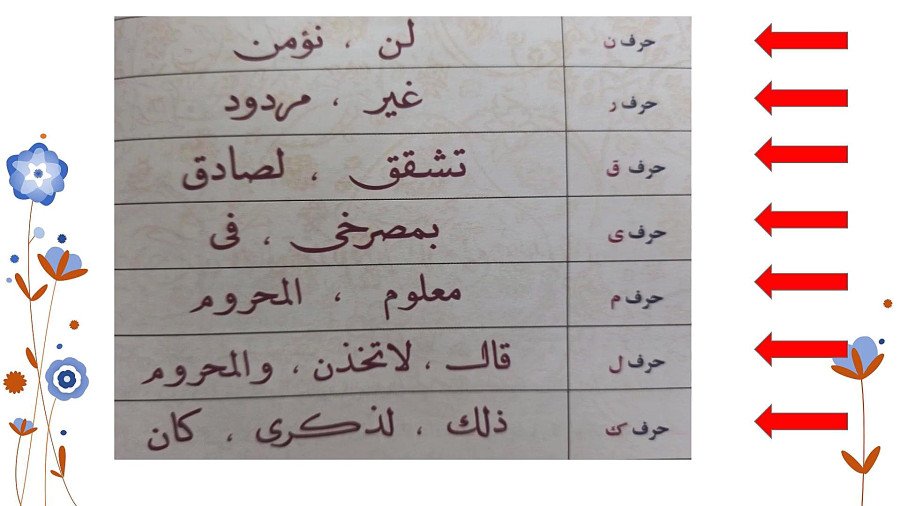 حرف ن لن ، نؤمن
حرف ر غیر ، مردود
حرف ق تشقق ، لصادق
حرف ی بمصرخی ، فی
حرف م معلوم ، المحروم
حرف ل قال ، لاتخذن ، والمحروم
حرف ک ذلك ، لذکری ، کان